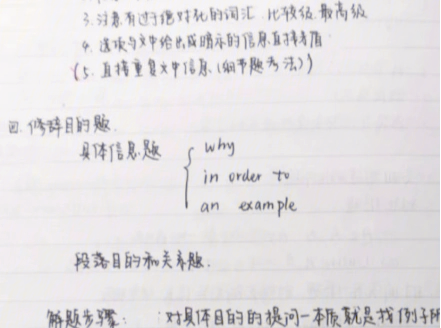 3. 注意有过于绝对化的词汇 比较级 最高级
4. 选项与文中给出或暗示的信息直接矛盾
(5. 直接重复文中信息 (细节题考法))
四. 修辞目的题.
具体信息题 { why
in order to
an example
段落目的和关系题.
解题步骤: 对具体目的的提问一本质就是找例子所